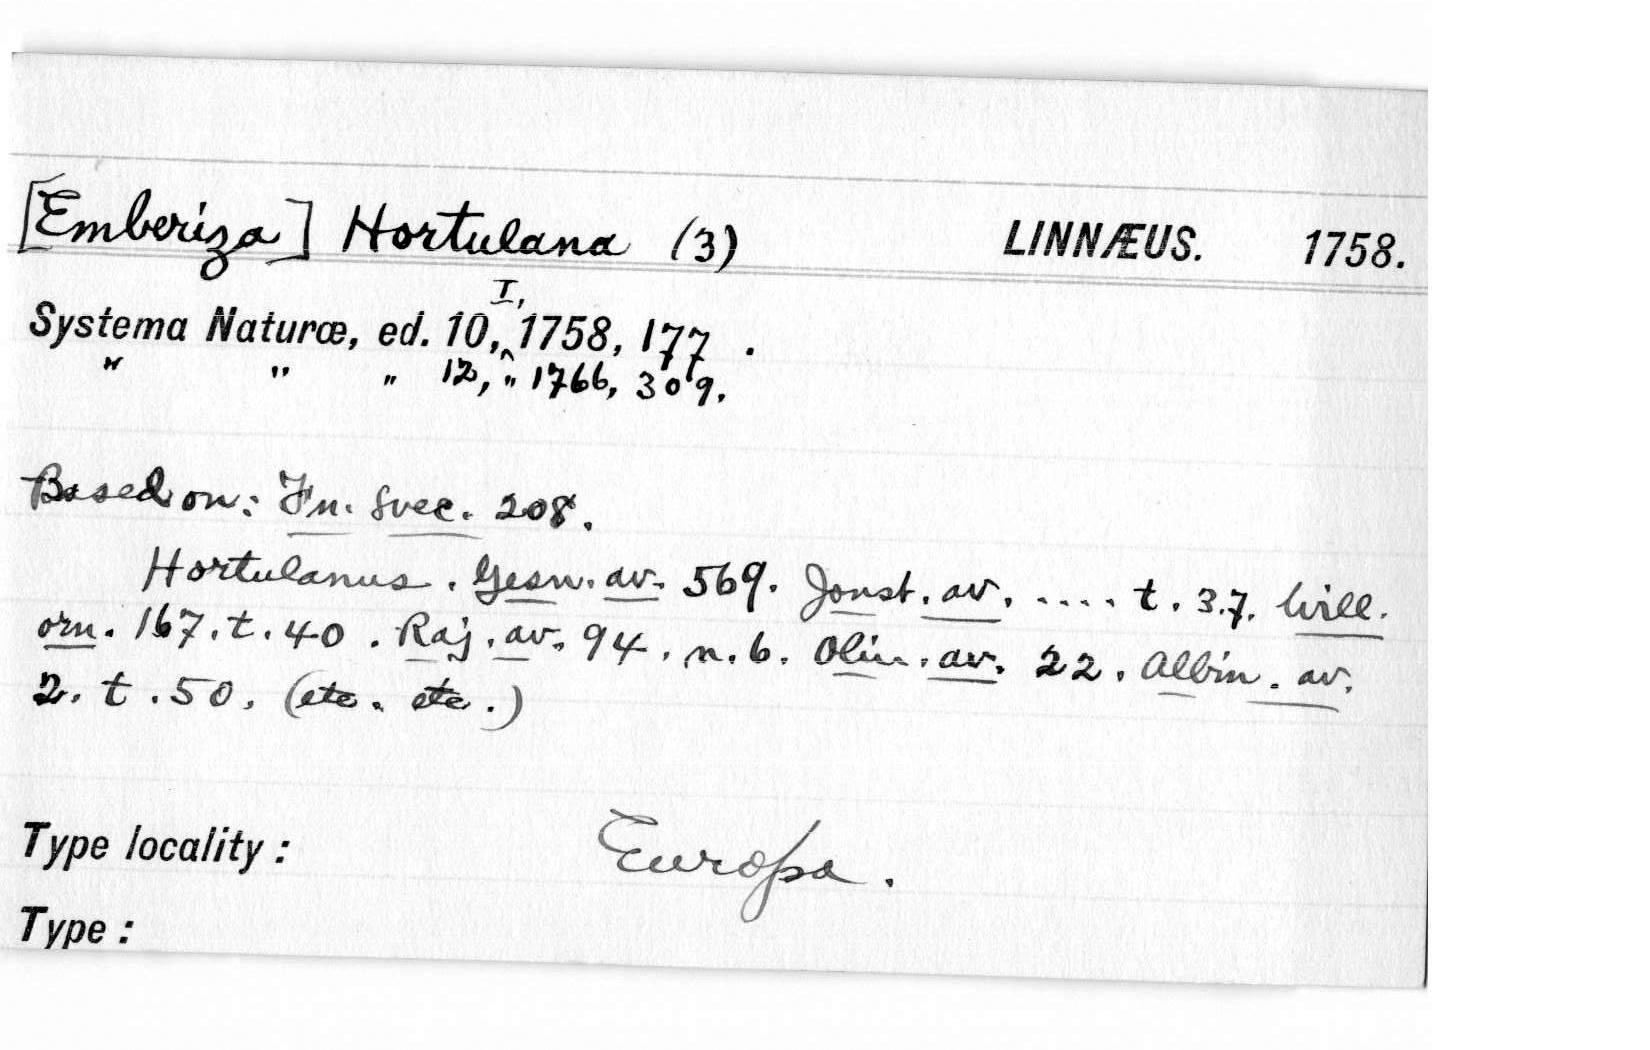 [Emberiza] Hortulana (3) LINNÆUS. 1758.
Systema Naturæ, ed. 10, I, 1758, 177.
" " " 12, " 1766, 309.
Based on: Fn. Svec. 208.
Hortulanus. Gesn. av. 569. Jonst. av. .... t. 37. Will.
orn. 167. t. 40. Raj. av. 94. n. 6. Olin. av. 22. Albin. av.
2. t. 50. (etc. etc.)
Type locality: Europa.
Type: